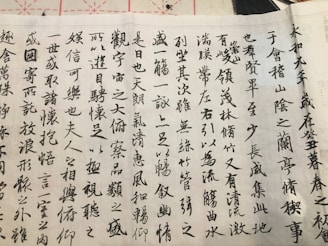 永和九年歲在癸丑暮春之初
于會稽山陰之蘭亭脩禊事
也群賢畢至少長咸集此地
有崇山峻領茂林脩竹又有清流激
湍暎帶左右引以為流觴曲水
列坐其次雖無絲竹管弦之
盛一觴一詠亦足以暢敘幽情
是日也天朗氣清惠風和暢仰
觀宇宙之大俯察品類之盛
所以遊目騁懷足以極視聽之
娛信可樂也夫人之相與俯仰
一世或取諸懷抱悟言一室之內
或因寄所託放浪形骸之外雖
趣舍萬殊靜躁不同